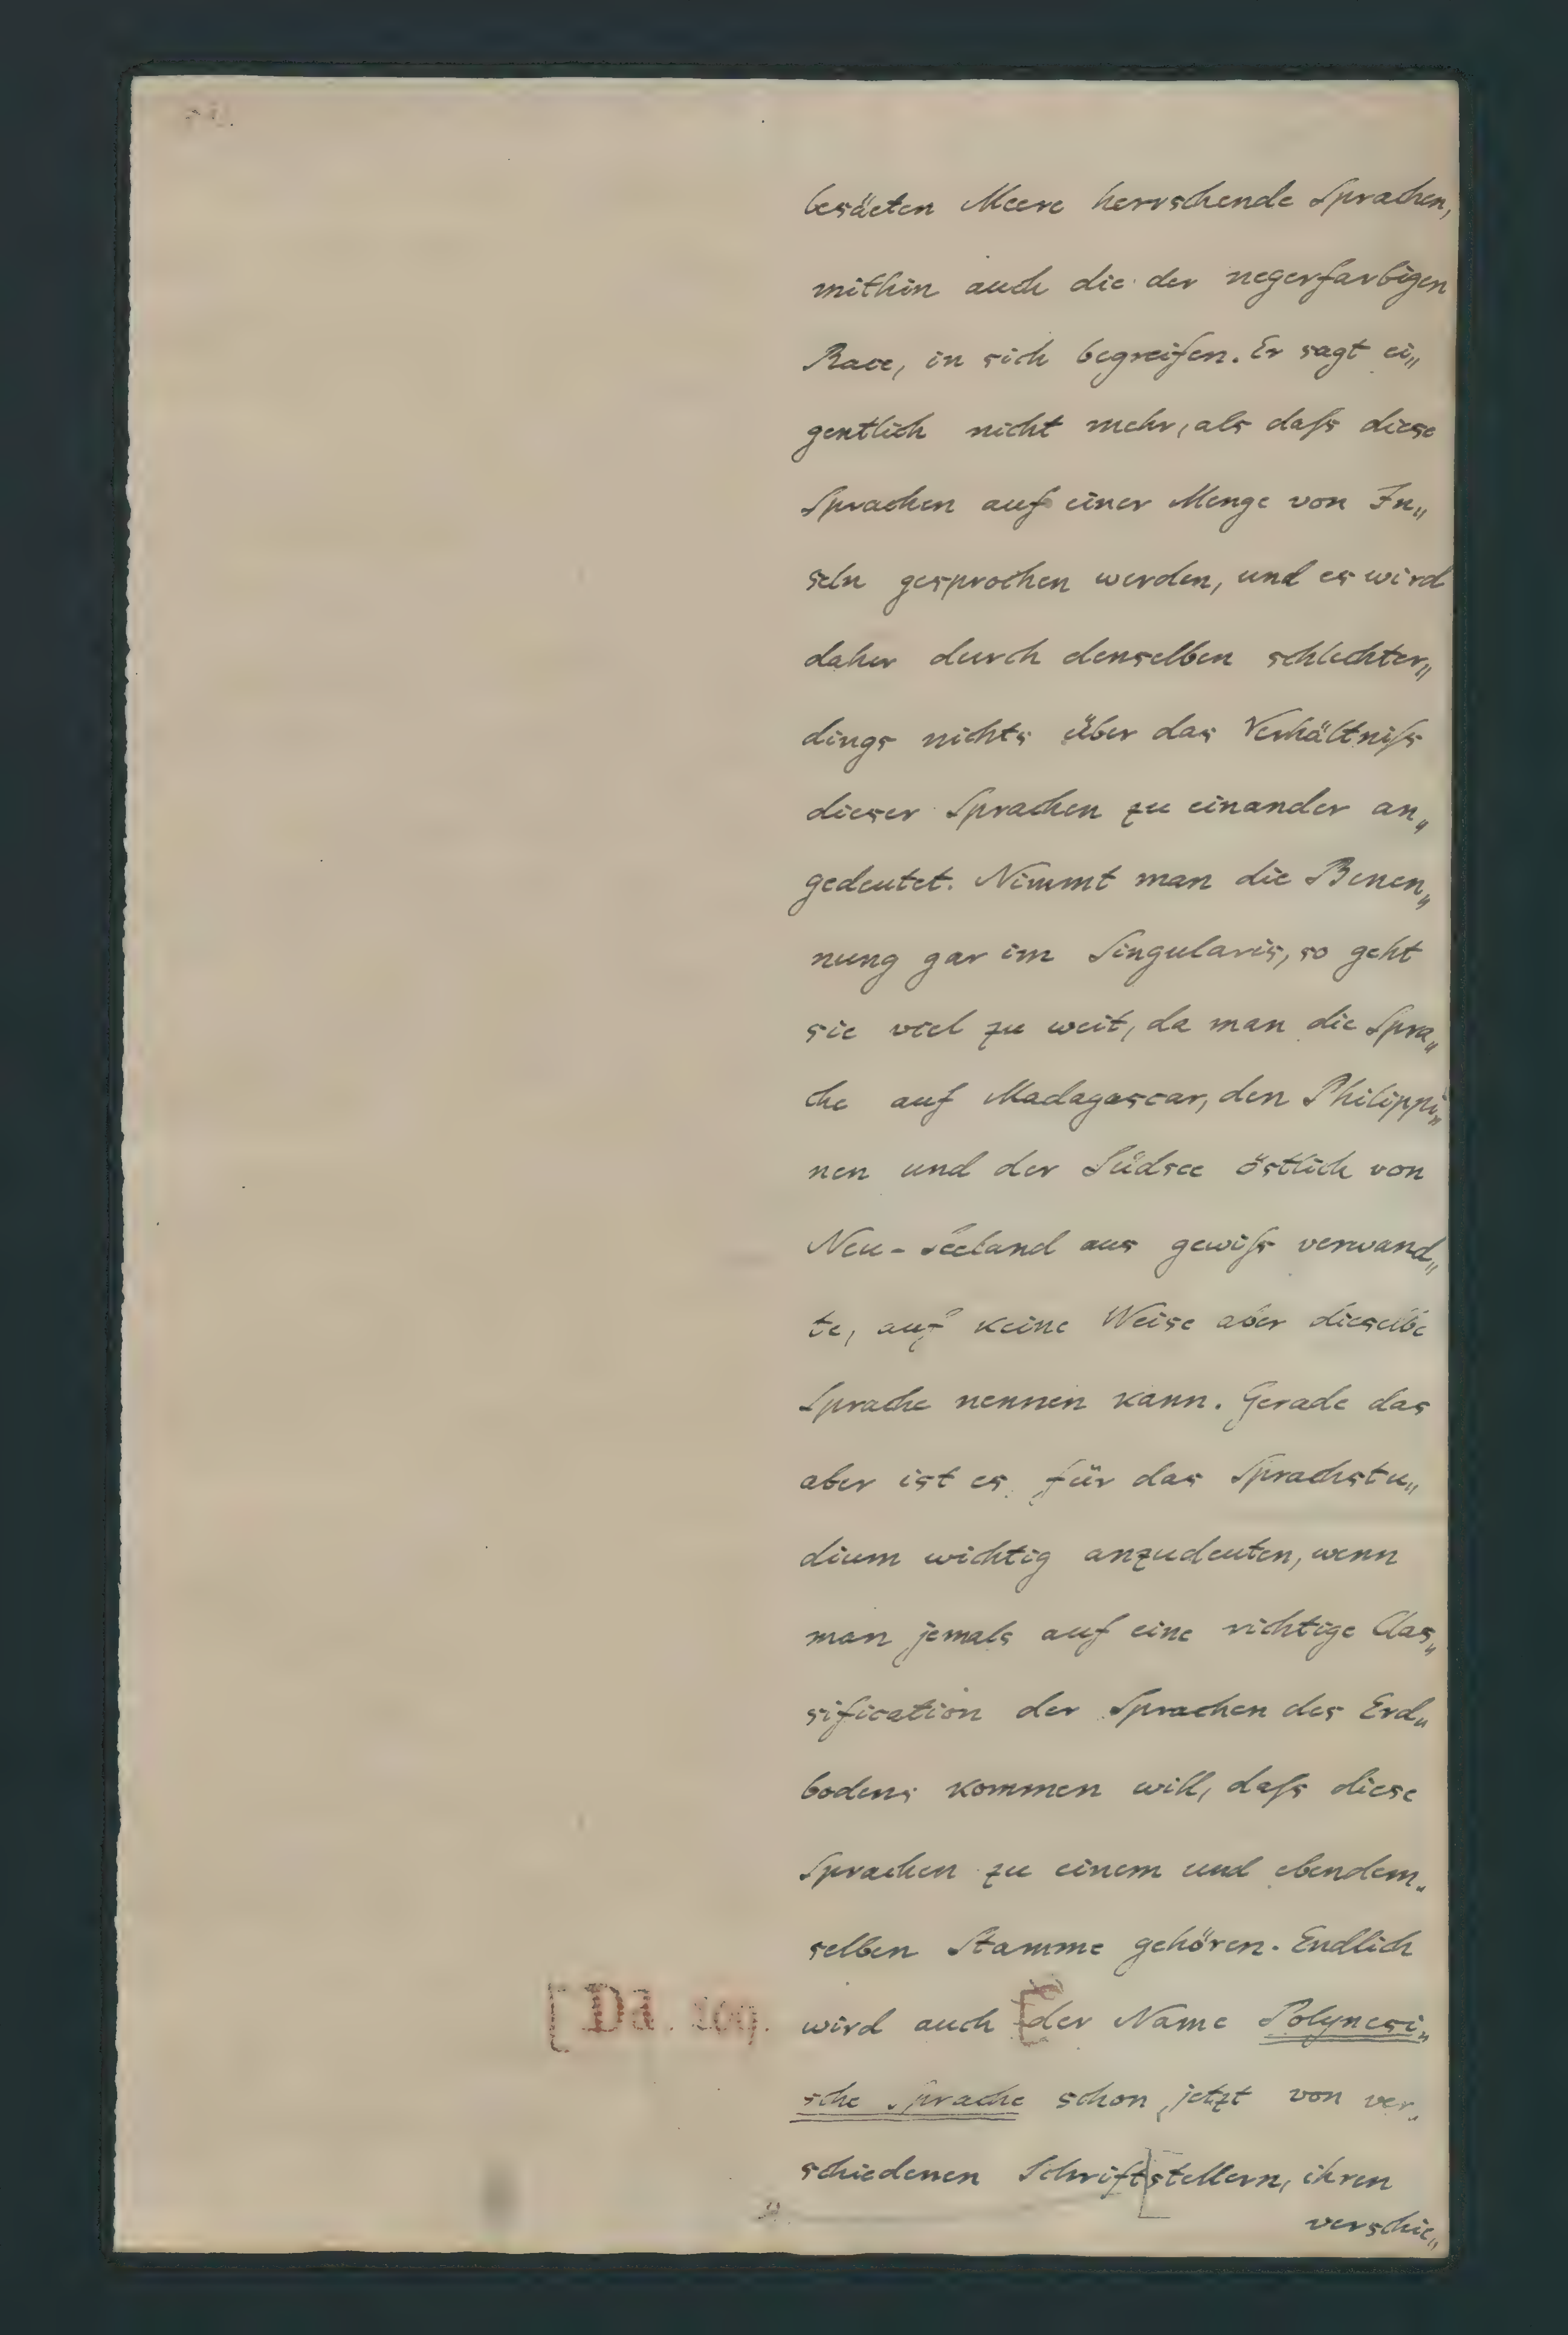 besäeten Meere herrschende Sprachen,
mithin auch die der negerfarbigen
Race, in sich begreifen. Er sagt ei„
gentlich nicht mehr, als daſs diese
Sprachen auf einer Menge von In„
seln gesprochen werden, und es wird
daher durch denselben schlechter„
dings nichts über das Verhältniſs
dieser Sprachen zu einander an„
gedeutet. Nimmt man die Benen„
nung gar im Singularis, so geht
sie viel zu weit, da man die Spra„
che auf Madagascar, den Philippi„
nen und der Südsee östlich von
Neu-Seeland aus gewiſs verwand„
te, auf keine Weise aber dieselbe
Sprache nennen kann. Gerade das
aber ist es für das Sprachstu„
dium wichtig anzudeuten, wenn
man jemals auf eine richtige Clas„
sification der Sprachen des Erd„
bodens kommen will, daſs diese
Sprachen zu einem und ebendem„
selben Stamme gehören. Endlich
[Da. 109. wird auch [der Name Polynesi„
sche Sprache schon jetzt von ver„
schiedenen Schrift[stellern, ihren
verschie„